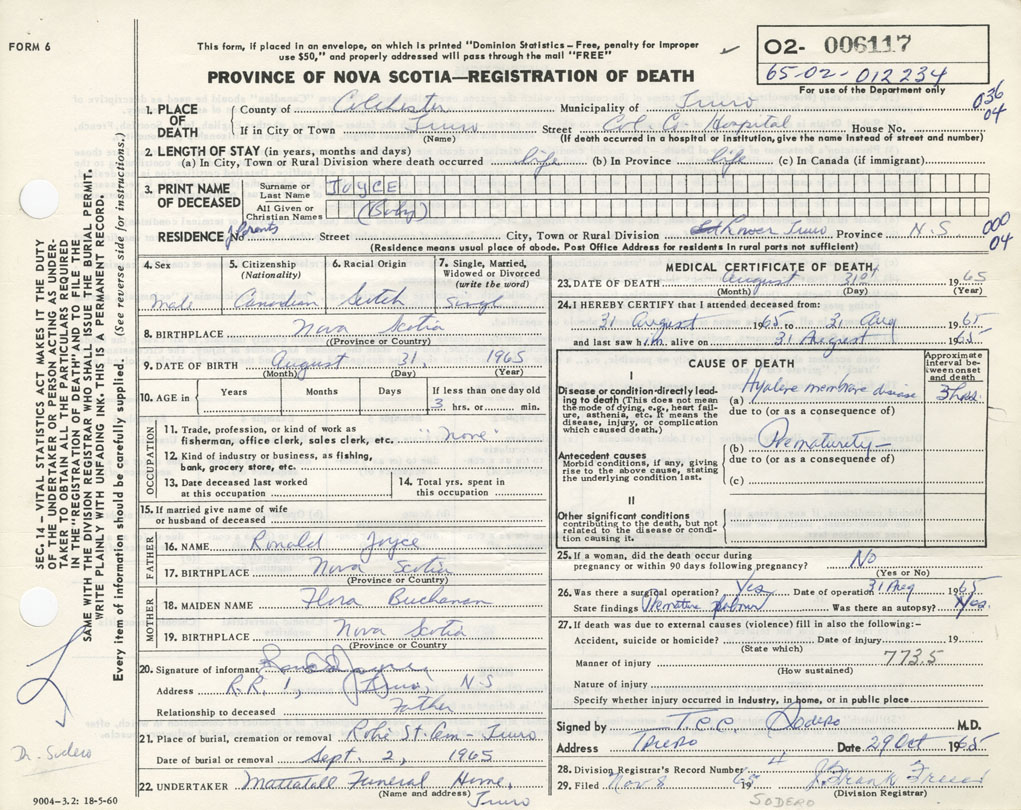 FORM 6
This form, if placed in an envelope, on which is printed "Dominion Statistics – Free, penalty for improper
use $50," and properly addressed will pass through the mail "FREE"
PROVINCE OF NOVA SCOTIA—REGISTRATION OF DEATH
O2- 006117
65-02-012234
For use of the Department only
036
04
1. PLACE OF DEATH
County of Colchester Municipality of Truro
If in City or Town Truro Street Col. Co. Hospital House No.
(Name) (If death occurred in hospital or institution, give the name instead of street and number)
2. LENGTH OF STAY (in years, months and days)
(a) In City, Town or Rural Division where death occurred life (b) In Province life (c) In Canada (if immigrant)
3. PRINT NAME OF DECEASED
Surname or Last Name JOYCE
All Given or Christian Names (Baby)
RESIDENCE No Parents Street City, Town or Rural Division Lower Truro Province N.S.
(Residence means usual place of abode. Post Office Address for residents in rural parts not sufficient)
000
04
4. Sex Male
5. Citizenship (Nationality) Canadian
6. Racial Origin Scotch
7. Single, Married, Widowed or Divorced (write the word) Single
8. BIRTHPLACE Nova Scotia
(Province or Country)
9. DATE OF BIRTH August 31, 1965
(Month) (Day) (Year)
10. AGE in Years Months Days If less than one day old
3 hrs. or min.
OCCUPATION
11. Trade, profession, or kind of work as
fisherman, office clerk, sales clerk, etc. "none"
12. Kind of industry or business, as fishing,
bank, grocery store, etc.
13. Date deceased last worked
at this occupation
14. Total yrs. spent in
this occupation
15. If married give name of wife
or husband of deceased
FATHER
16. NAME Ronald Joyce
17. BIRTHPLACE Nova Scotia
(Province or Country)
MOTHER
18. MAIDEN NAME Flora Buchanan
19. BIRTHPLACE Nova Scotia
(Province or Country)
20. Signature of informant
Address R.R. 1, Truro, N.S
Relationship to deceased Father
21. Place of burial, cremation or removal Robie St. Cem - Truro
Date of burial or removal Sept. 2, 1965
22. UNDERTAKER Mattatall Funeral Home,
(Name and address) Truro
MEDICAL CERTIFICATE OF DEATH
23. DATE OF DEATH August 31st 1965
(Month) (Day) (Year)
24. I HEREBY CERTIFY that I attended deceased from:
31 August 1965 to 31 Aug 1965
and last saw him alive on 31 August 1965
CAUSE OF DEATH
Approximate interval between onset and death
I
Disease or condition directly leading to death (This does not mean the mode of dying, e.g., heart failure, asthenia, etc. It means the disease, injury, or complication which caused death.)
(a) Hyalene membrane disease 3 hrs.
due to (or as a consequence of)
(b) Prematurity
due to (or as a consequence of)
(c)
Antecedent causes
Morbid conditions, if any, giving rise to the above cause, stating the underlying condition last.
II
Other significant conditions
contributing to the death, but not related to the disease or condition causing it.
25. If a woman, did the death occur during
pregnancy or within 90 days following pregnancy? No
(Yes or No)
26. Was there a surgical operation? Yes Date of operation 31 Aug 1965
State findings Was there an autopsy? Yes.
27. If death was due to external causes (violence) fill in also the following:-
Accident, suicide or homicide? Date of injury 19
(State which)
Manner of injury 773.5
(How sustained)
Nature of injury
Specify whether injury occurred in industry, in home, or in public place
Signed by Sodero M.D.
Address Truro Date 29 Oct 1965
28. Division Registrar's Record Number
29. Filed Nov 8 1965 J. Frank
(Division Registrar)
SODERO
SEC. 14 – VITAL STATISTICS ACT MAKES IT THE DUTY
OF THE UNDERTAKER OR PERSON ACTING AS UNDER-
TAKER TO OBTAIN ALL THE PARTICULARS REQUIRED
IN THE "REGISTRATION OF DEATH" AND TO FILE THE
SAME WITH THE DIVISION REGISTRAR WHO SHALL ISSUE THE BURIAL PERMIT.
WRITE PLAINLY WITH UNFADING INK. THIS IS A PERMANENT RECORD.
Every item of information should be carefully supplied. (See reverse side for instructions.)
Dr. Sodero
9004-3.2: 18-5-60